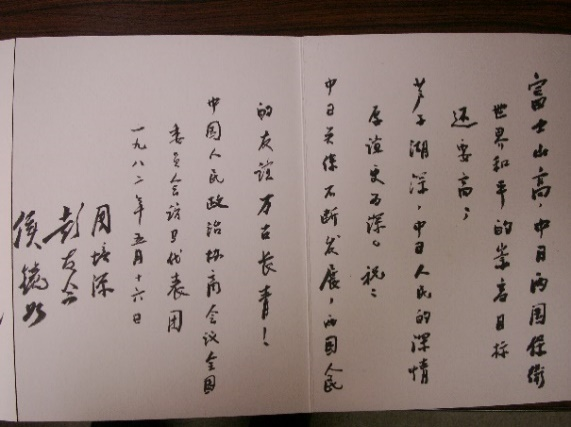 富士山高，中日两国保衛
世界和平的崇高目标
还要高；
芦子湖深，中日人民的深情
厚谊更为深。祝：
中日关係不断发展，两国人民
的友谊万古长青！
中国人民政治协商会议全国
委员会访日代表团
一九八二年五月十六日
周培源
彭友今
侯镜如